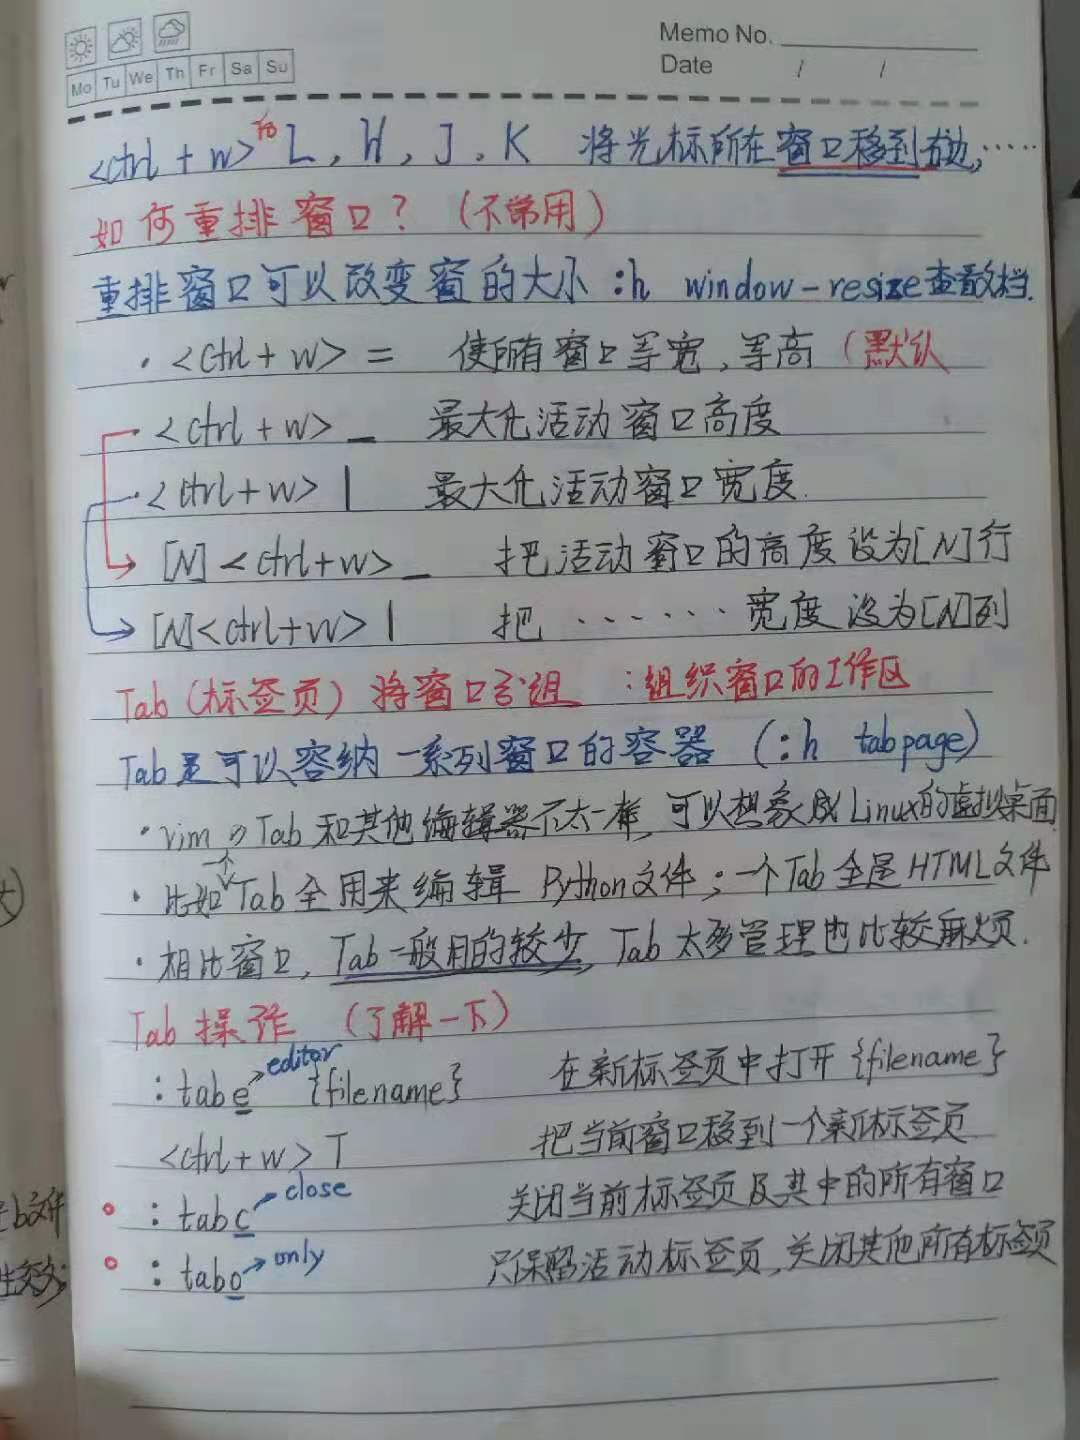 Memo No.
Mo Tu We Th Fr Sa Su
Date / /
<ctrl + w> L, H, J, K 将光标所在窗口移到右边,……
如何重排窗口? (不常用)
重排窗口可以改变窗的大小 :h window-resize查看文档.
· <ctrl + w> = 使所有窗口等宽,等高 (默认
· <ctrl + w> _ 最大化活动窗口高度
· <ctrl + w> | 最大化活动窗口宽度.
[N] <ctrl+w> _ 把活动窗口的高度设为[N]行
[N]<ctrl+w> | 把 ······ 宽度设为[N]列
Tab (标签页) 将窗口分组 :组织窗口的工作区
Tab是可以容纳一系列窗口的容器 (:h tabpage)
· vim の Tab 和其他编辑器不太一样,可以想象成Linux的虚拟桌面
· 比如 Tab 全用来编辑 Python文件;一个Tab全是HTML文件
· 相比窗口,Tab一般用的较少,Tab太多管理也比较麻烦.
Tab 操作 (了解一下)
editor
:tabe {filename} 在新标签页中打开 {filename}
<ctrl+w> T 把当前窗口移到一个新标签页
close
:tabc 关闭当前标签页及其中的所有窗口
only
:tabo 只保留活动标签页,关闭其他所有标签页
b文件